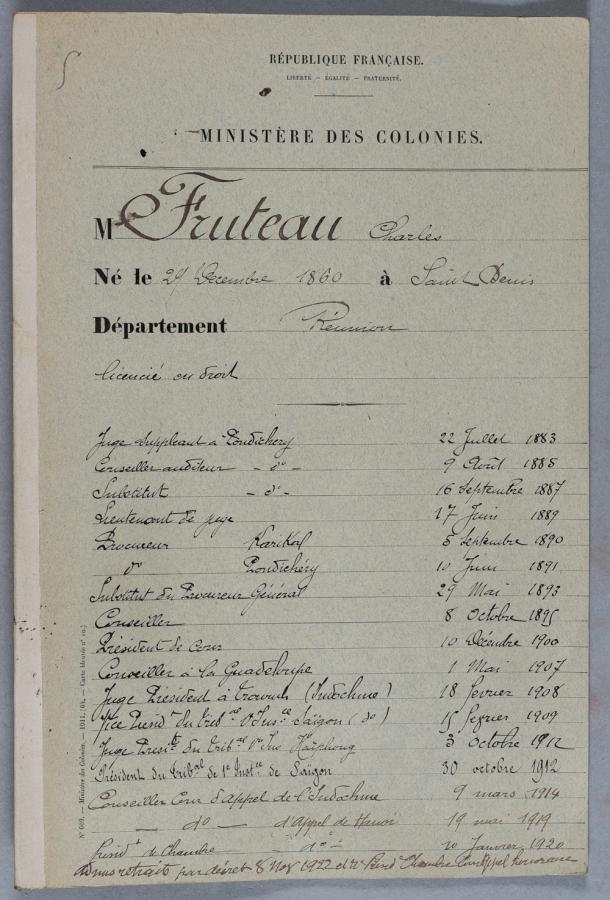 RÉPUBLIQUE FRANÇAISE.
LIBERTÉ – ÉGALITÉ – FRATERNITÉ.
MINISTÈRE DES COLONIES.
M Fruteau Charles
Né le 29 Décembre 1860 à Saint Denis
Département Réunion
licencié en droit
Juge suppléant à Pondichéry 22 Juillet 1883
Conseiller auditeur – do – 9 Août 1885
Substitut – do – 16 Septembre 1887
Lieutenant de juge 17 Juin 1889
Procureur Karikal 5 Septembre 1890
do Pondichéry 10 Juin 1891
Substitut du Procureur Général 29 Mai 1893
Conseiller 8 Octobre 1895
Président de Cour 10 Décembre 1900
Conseiller à la Guadeloupe 1 Mai 1907
Juge Président à (Indochine) 18 fevrier 1908
Vice Présidt du Tribal 1re Insce Saïgon (do) 15 fevrier 1909
Juge Présidt du Tribal 1re Ins Haïphong 3 Octobre 1912
Président du Tribal de 1re Instce de Saïgon 30 octobre 1912
Conseiller Cour d'Appel de l'Indochine 9 mars 1914
– do – d'Appel de Hanoï 19 mai 1919
Présidt de Chambre – do – 20 Janvier 1920
admis retraite par décret 8 Nov 1922 et Présidt Chambre Cour Appel honoraire
N° 669. – Ministère des Colonies. – 1911. (04. – Carte bleutée n°